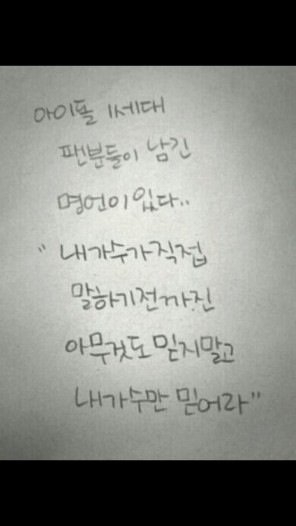 아이돌 1세대
팬분들이 남긴
명언이 있다..
"내가수가직접
말하기전까진
아무것도 믿지말고
내가수만 믿어라"